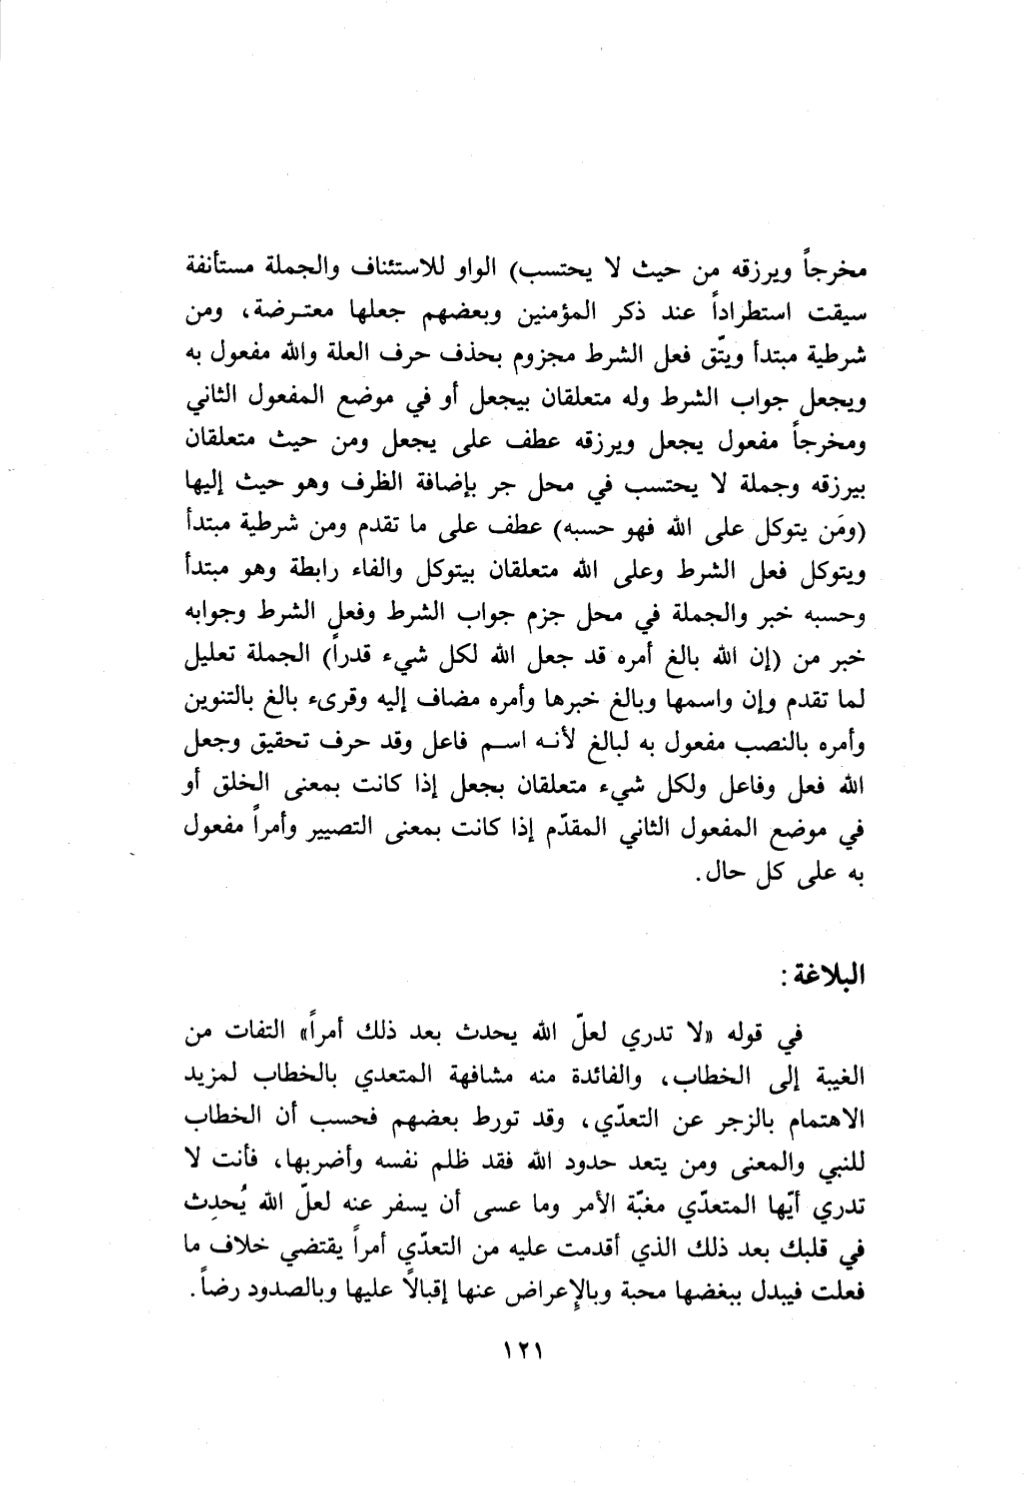 مخرجاً ويرزقه من حيث لا يحتسب) الواو للاستئناف والجملة مستأنفة
سيقت استطراداً عند ذكر المؤمنين وبعضهم جعلها معترضة، ومن
شرطية مبتدأ ويتّق فعل الشرط مجزوم بحذف حرف العلة والله مفعول به
ويجعل جواب الشرط وله متعلقان بيجعل أو في موضع المفعول الثاني
ومخرجاً مفعول يجعل ويرزقه عطف على يجعل ومن حيث متعلقان
بيرزقه وجملة لا يحتسب في محل جر بإضافة الظرف وهو حيث إليها
(ومَن يتوكل على الله فهو حسبه) عطف على ما تقدم ومن شرطية مبتدأ
ويتوكل فعل الشرط وعلى الله متعلقان بيتوكل والفاء رابطة وهو مبتدأ
وحسبه خبر والجملة في محل جزم جواب الشرط وفعل الشرط وجوابه
خبر من (إن الله بالغ أمره قد جعل الله لكل شيء قدراً) الجملة تعليل
لما تقدم وإن واسمها وبالغ خبرها وأمره مضاف إليه وقرىء بالغ بالتنوين
وأمره بالنصب مفعول به لبالغ لأنه اسم فاعل وقد حرف تحقيق وجعل
الله فعل وفاعل ولكل شيء متعلقان بجعل إذا كانت بمعنى الخلق أو
في موضع المفعول الثاني المقدّم إذا كانت بمعنى التصيير وأمراً مفعول
به على كل حال.
البلاغة:
في قوله «لا تدري لعلّ الله يحدث بعد ذلك أمراً» التفات من
الغيبة إلى الخطاب، والفائدة منه مشافهة المتعدي بالخطاب لمزيد
الاهتمام بالزجر عن التعدّي، وقد تورط بعضهم فحسب أن الخطاب
للنبي والمعنى ومن يتعد حدود الله فقد ظلم نفسه وأضربها، فأنت لا
تدري أيّها المتعدّي مغبّة الأمر وما عسى أن يسفر عنه لعلّ الله يُحدِث
في قلبك بعد ذلك الذي أقدمت عليه من التعدّي أمراً يقتضي خلاف ما
فعلت فيبدل ببغضها محبة وبالإعراض عنها إقبالاً عليها وبالصدود رضاً.
١٢١